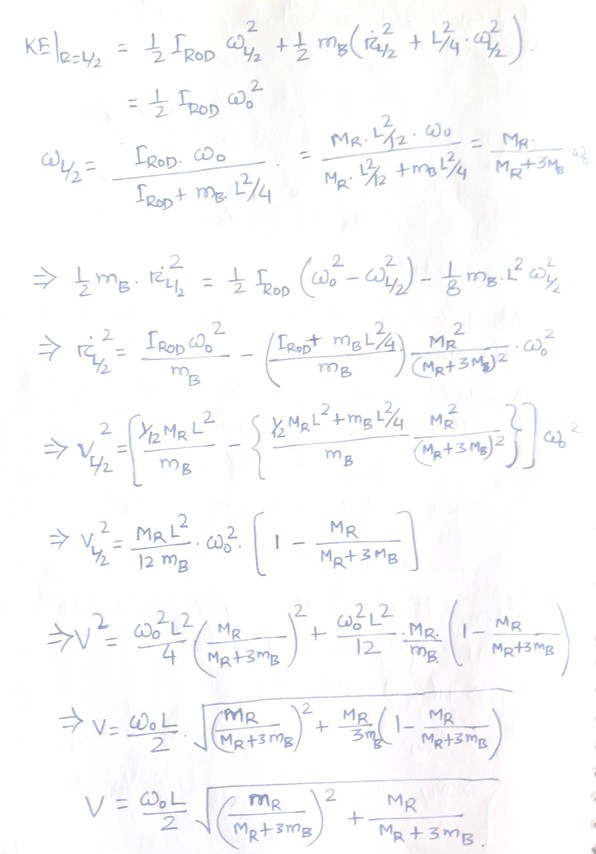 KE|R=L/2 = 1/2 I_ROD ω_{L/2}^2 + 1/2 m_B (ṙ_{L/2}^2 + L^2/4 · ω_{L/2}^2).
= 1/2 I_ROD ω_0^2
ω_{L/2} = I_ROD · ω_0 / (I_ROD + m_B · L^2/4) = (M_R · L^2/12 · ω_0) / (M_R · L^2/12 + m_B L^2/4) = M_R · / (M_R + 3M_B) · ω_0
⇒ 1/2 m_B · ṙ_{L/2}^2 = 1/2 I_ROD (ω_0^2 − ω_{L/2}^2) − 1/8 m_B · L^2 ω_{L/2}^2
⇒ ṙ_{L/2}^2 = I_ROD ω_0^2 / m_B − ((I_ROD + m_B L^2/4) / m_B) M_R^2 / (M_R + 3M_B)^2 · ω_0^2
⇒ V_{L/2}^2 = [1/12 M_R L^2 / m_B − {(1/12 M_R L^2 + m_B L^2/4) / m_B · M_R^2 / (M_R + 3M_B)^2}] ω_0^2
⇒ V_{L/2}^2 = M_R L^2 / 12 m_B · ω_0^2 · [1 − M_R / (M_R + 3M_B)]
⇒ V^2 = ω_0^2 L^2 / 4 (M_R / (M_R + 3m_B))^2 + ω_0^2 L^2 / 12 · M_R · / m_B · (1 − M_R / (M_R + 3m_B))
⇒ V = ω_0 L / 2 · √((m_R / (M_R + 3m_B))^2 + M_R / 3m_B (1 − M_R / (M_R + 3m_B)))
V = ω_0 L / 2 √((m_R / (M_R + 3m_B))^2 + M_R / (M_R + 3m_B)).